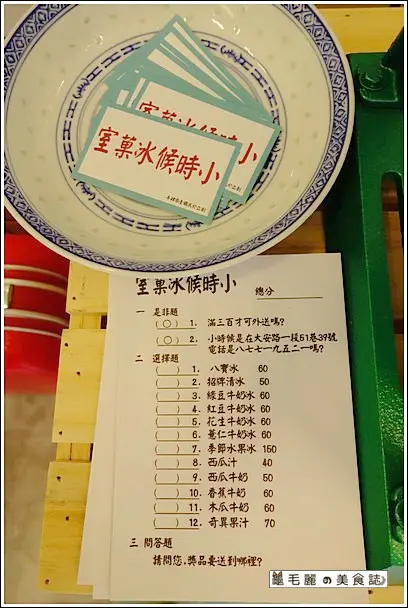 室菓冰候時小
室菓冰候時小
室菓冰候時小
總分
一 是非題
(○) 1. 滿三百才可外送嗎?
(○) 2. 小時候是在大安路一段51巷39號
電話是八七七一九五二一嗎?
二 選擇題
( ) 1. 八寶冰 60
( ) 2. 招牌清冰 50
( ) 3. 綠豆牛奶冰 60
( ) 4. 紅豆牛奶冰 60
( ) 5. 花生牛奶冰 60
( ) 6. 薏仁牛奶冰 60
( ) 7. 季節水果冰 150
( ) 8. 西瓜汁 40
( ) 9. 西瓜牛奶 50
( ) 10. 香蕉牛奶 60
( ) 11. 木瓜牛奶 60
( ) 12. 奇異果汁 70
三 問答題
請問您,獎品要送到哪裡?
毛麗の美食誌